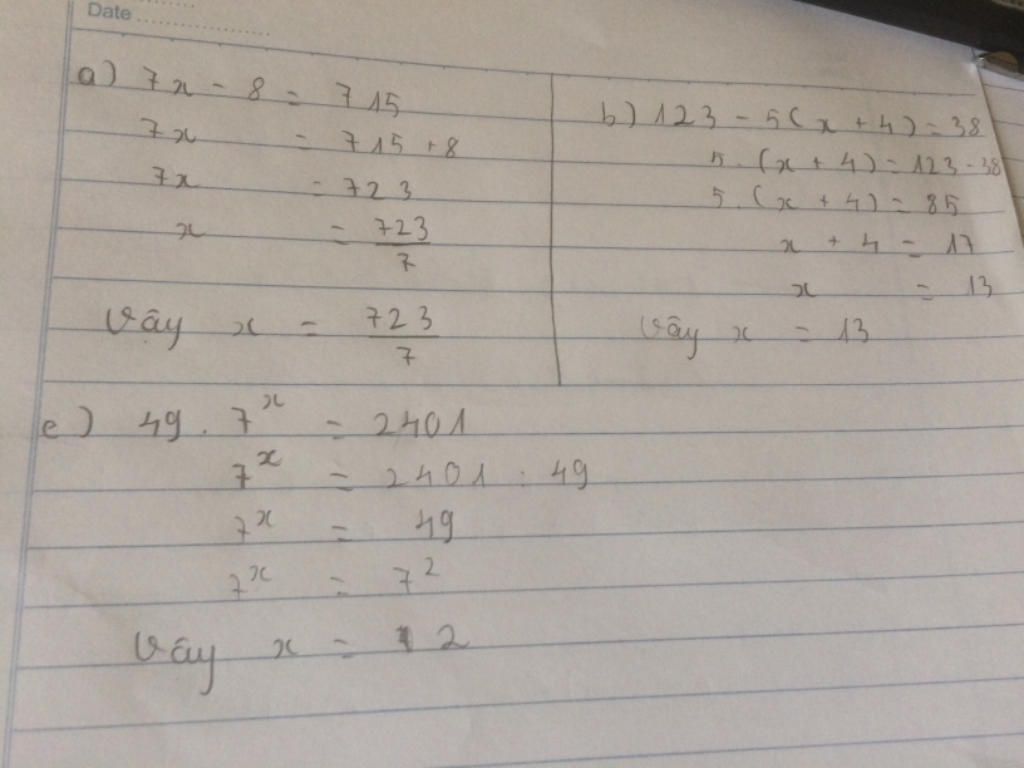 Date
a) 7x - 8 = 715
7x = 715 + 8
7x = 723
x = 723/7
Vậy x = 723/7
b) 123 - 5(x + 4) = 38
5. (x + 4) = 123 - 38
5. (x + 4) = 85
x + 4 = 17
x = 13
Vậy x = 13
c) 49 . 7^x = 2401
7^x = 2401 : 49
7^x = 49
7^x = 7^2
Vậy x = 2